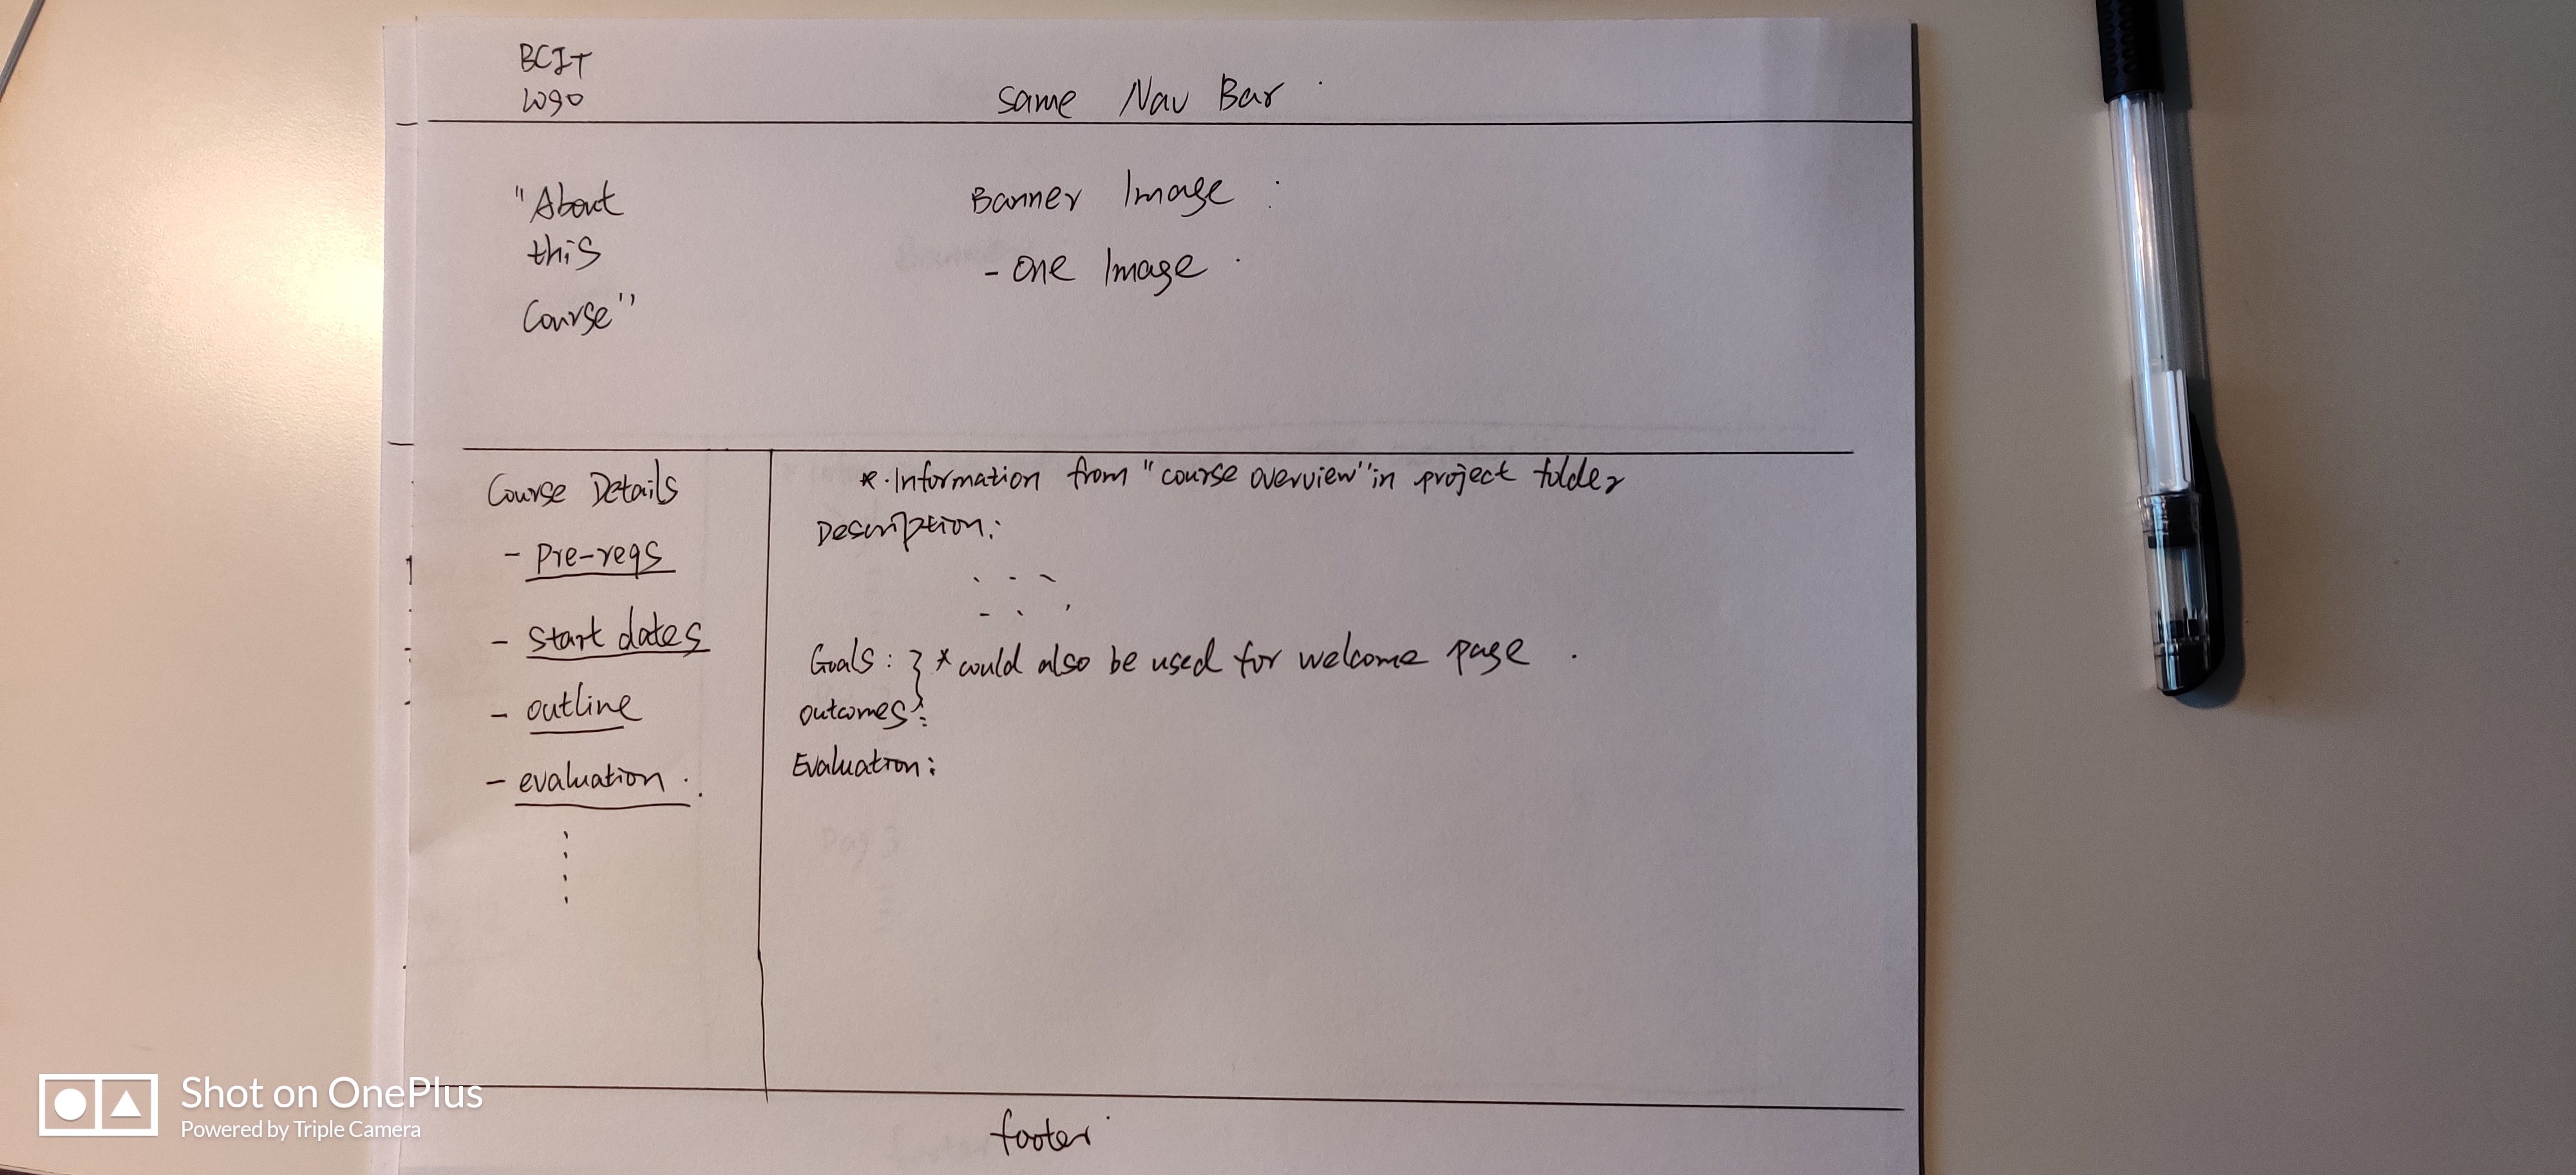 BCIT
Logo
same Nav Bar
"About
this
Course"
Banner Image :
- One Image
Course Details
- Pre-reqs
- start dates
- outline
- evaluation
* Information from "course overview" in project folder
Description:
Goals : } * could also be used for welcome page .
outcomes :
Evaluation :
footer
Shot on OnePlus
Powered by Triple Camera